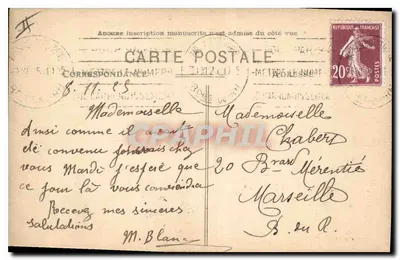 II
Aucune inscription manuscrite n'est admise du côté vue
CARTE POSTALE
CORRESPONDANCE
ADRESSE
RÉPUBLIQUE FRANÇAISE
20c
POSTES
8.11.25
Mademoiselle
Ainsi comme il avait
été convenu chez
vous Mardi j'espère que
ce jour là vous
Recevez mes sincères
salutations
M. Blanc
Mademoiselle
Chabert
20 Bvard Mérentié
Marseille
B. du R.